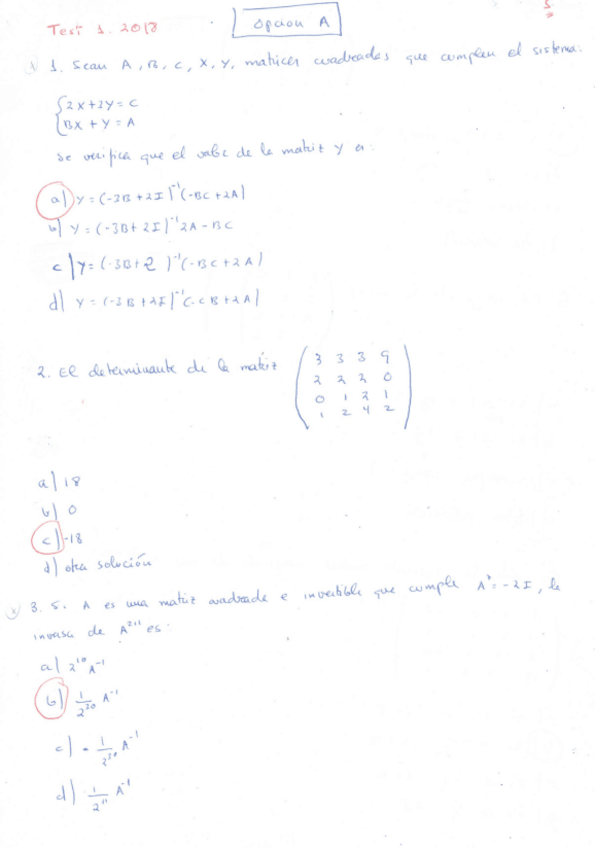 Test 1. 2018
Opcion A
1. Sean A, B, C, X, Y, matrices cuadradas que cumplen el sistema:
{2X+3Y=C
BX + Y = A
Se verifica que el valor de la matriz Y es:
a) Y = (-3B + 2I)⁻¹ (-BC + 2A)
b) Y = (-3B + 2I)⁻¹ 2A - BC
c) Y = (-3B + 2)⁻¹ (-BC + 2A)
d) Y = (-3B + 2I)⁻¹ (-CB + 2A)
2. El determinante de la matriz
3 3 3 9
2 2 2 0
0 1 2 1
1 2 4 2
a) 18
b) 0
c) -18
d) otra solución
3. S. A es una matriz cuadrada e invertible que cumple A⁷ = -2I, la
inversa de A²¹¹ es:
a) 2¹⁰ A⁻¹
b) 1/2³⁰ A⁻¹
c) - 1/2³⁰ A⁻¹
d) 1/2¹¹ A⁻¹